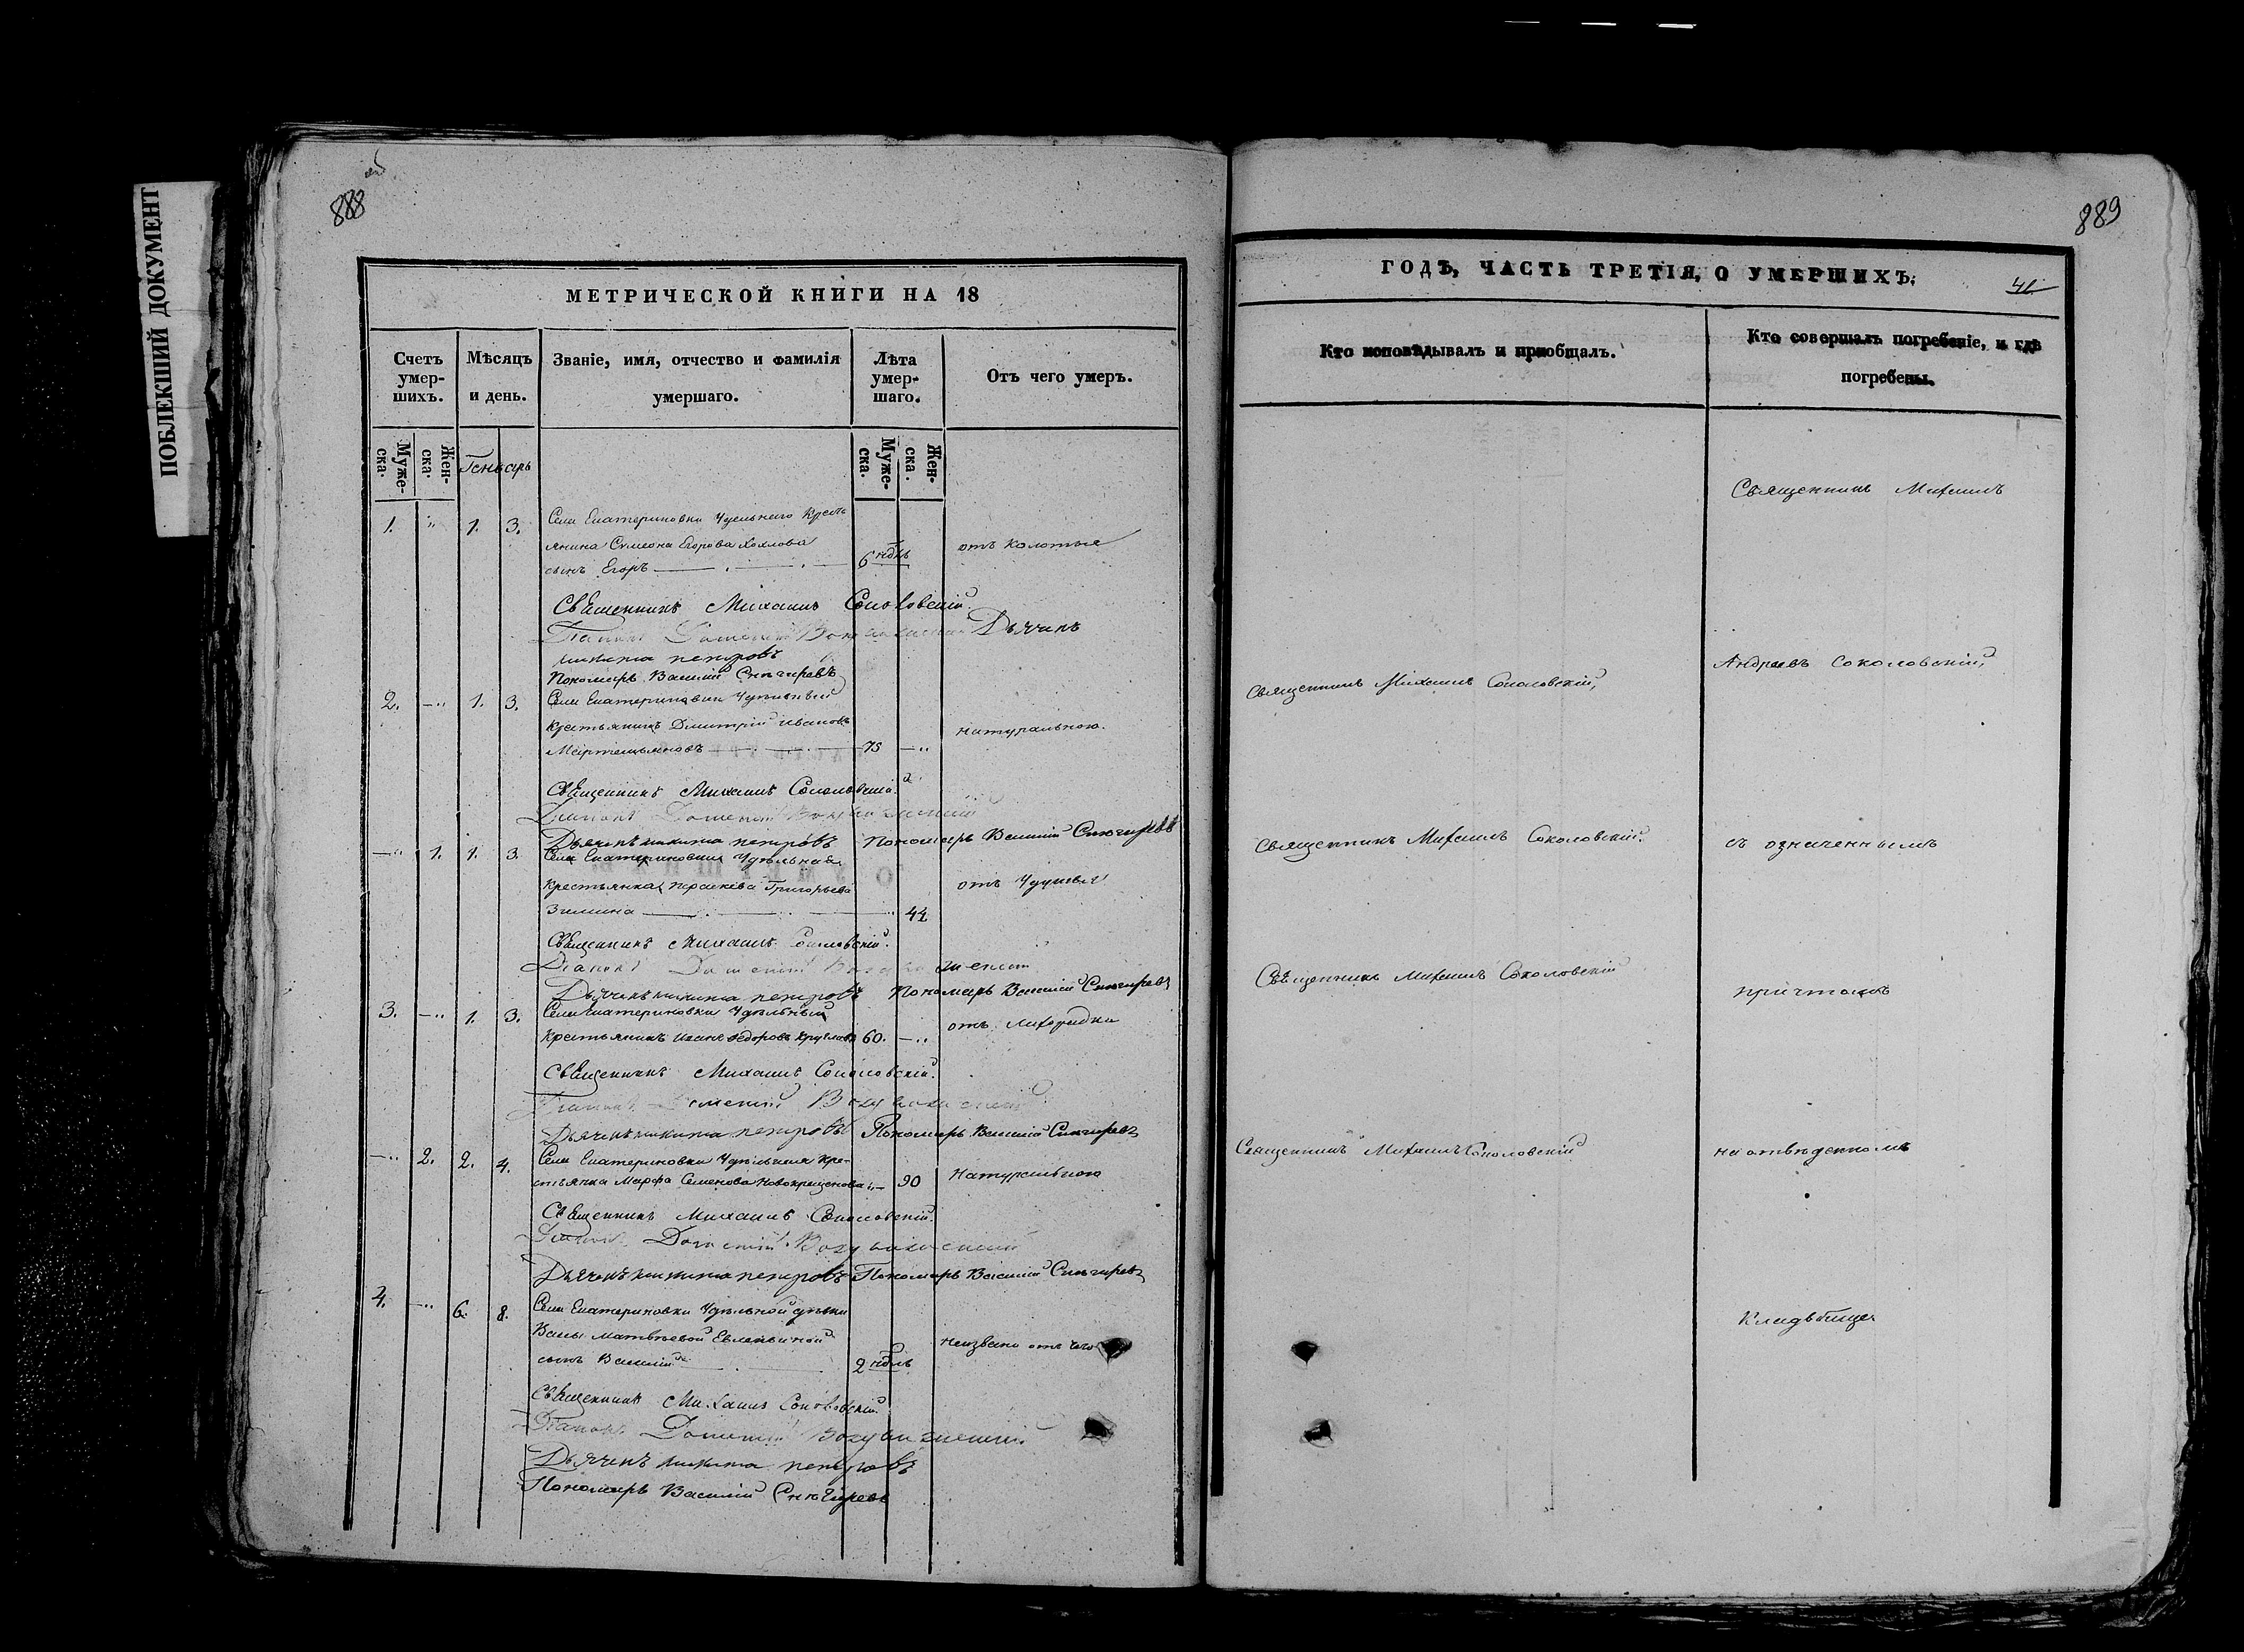 ПОБЛЕКШИЙ ДОКУМЕНТ
888
МЕТРИЧЕСКОЙ КНИГИ НА 18
Счетъ умер-шихъ.
Мѣсяцъ и день.
Званіе, имя, отчество и фамилія умершаго.
Лѣта умер-шаго.
Отъ чего умеръ.
Муже-ска.
Жен-ска.
Генварь
Муже-ска.
Жен-ска.
1. " 1. 3. Села Екатериновки Удельнаго Кресть
янина Симеона Егорова Хохлова
сынъ Егоръ 6 ндль отъ Колотья
Священникъ Михаилъ Соколовскій
Діаконъ Дометій Дьячекъ
никита петровъ
Пономарь Василій Снѣгиревъ
2. —" 1. 3. Села Екатериновки Удѣльный
крестьянинъ Дмитрій Ивановъ
Мартемьяновъ 75 —" натуральною.
Священникъ Михаилъ Соколовскій
Діаконъ Дометій
Дьячекъ никита петровъ Пономарь Василій Снѣгиревъ
—" 1. 1. 3. Села Екатериновки Удѣльная
крестьянка Праскева Григорьева
Зимина 44 отъ Удушья
Священникъ Михаилъ Соколовскій.
Діаконъ Дометій
Дьячекъ никита петровъ Пономарь Василій Снѣгиревъ
3. —" 1. 3. Села Екатериновки Удѣльный
крестьянинъ Иванъ Ѳедоровъ Кругловъ 60. —" отъ лихорадки
Священникъ Михаилъ Соколовскій.
Діаконъ Дометій
Дьячекъ никита петровъ Пономарь Василій Снѣгиревъ
—" 2. 2. 4. Села Екатериновки Удѣльная кре-
стьянка Марфа Семенова Новокрещенова "— 90 Натуральною
Священникъ Михаилъ Соколовскій.
Діаконъ Дометій
Дьячекъ никита петровъ Пономарь Василій Снѣгиревъ
4. —" 6. 8. Села Екатериновки Удѣльной дѣвки
Матвѣевой
сынъ Василій 2 ндль неизвано отъ чего
Священникъ Михаилъ Соколовскій.
Діаконъ Дометій
Дьячекъ никита петровъ
Пономарь Василій Снѣгиревъ
889
ГОДЪ, ЧАСТЬ ТРЕТІЯ, О УМЕРШИХЪ.
41.
Кто исповѣдывалъ и приобщалъ.
Кто совершалъ погребеніе, и гдѣ
погребены.
Священникъ Михаилъ
Андреевъ Соколовскій,
Священникъ Михаилъ Соколовскій,
Священникъ Михаилъ Соколовскій.
съ означеннымъ
Священникъ Михаилъ Соколовскій
причтомъ
Священникъ Михаилъ Соколовскій
на отвѣденномъ
Кладьбище